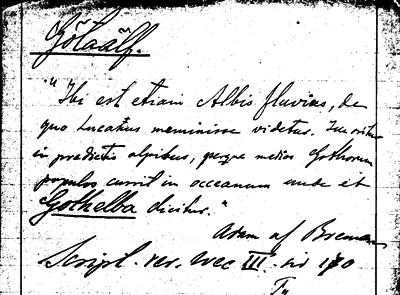 Götaälf.
"Ibi est etiam Albis fluvius, de
quo Lucanus meminisse videtur. Iste oritur
in predictis alpibus, perque medios Gothorum
populos currit in occeanum unde et
Gothelba dicitur."
Adam af Bremen
Script. rer. svec III. sid 170